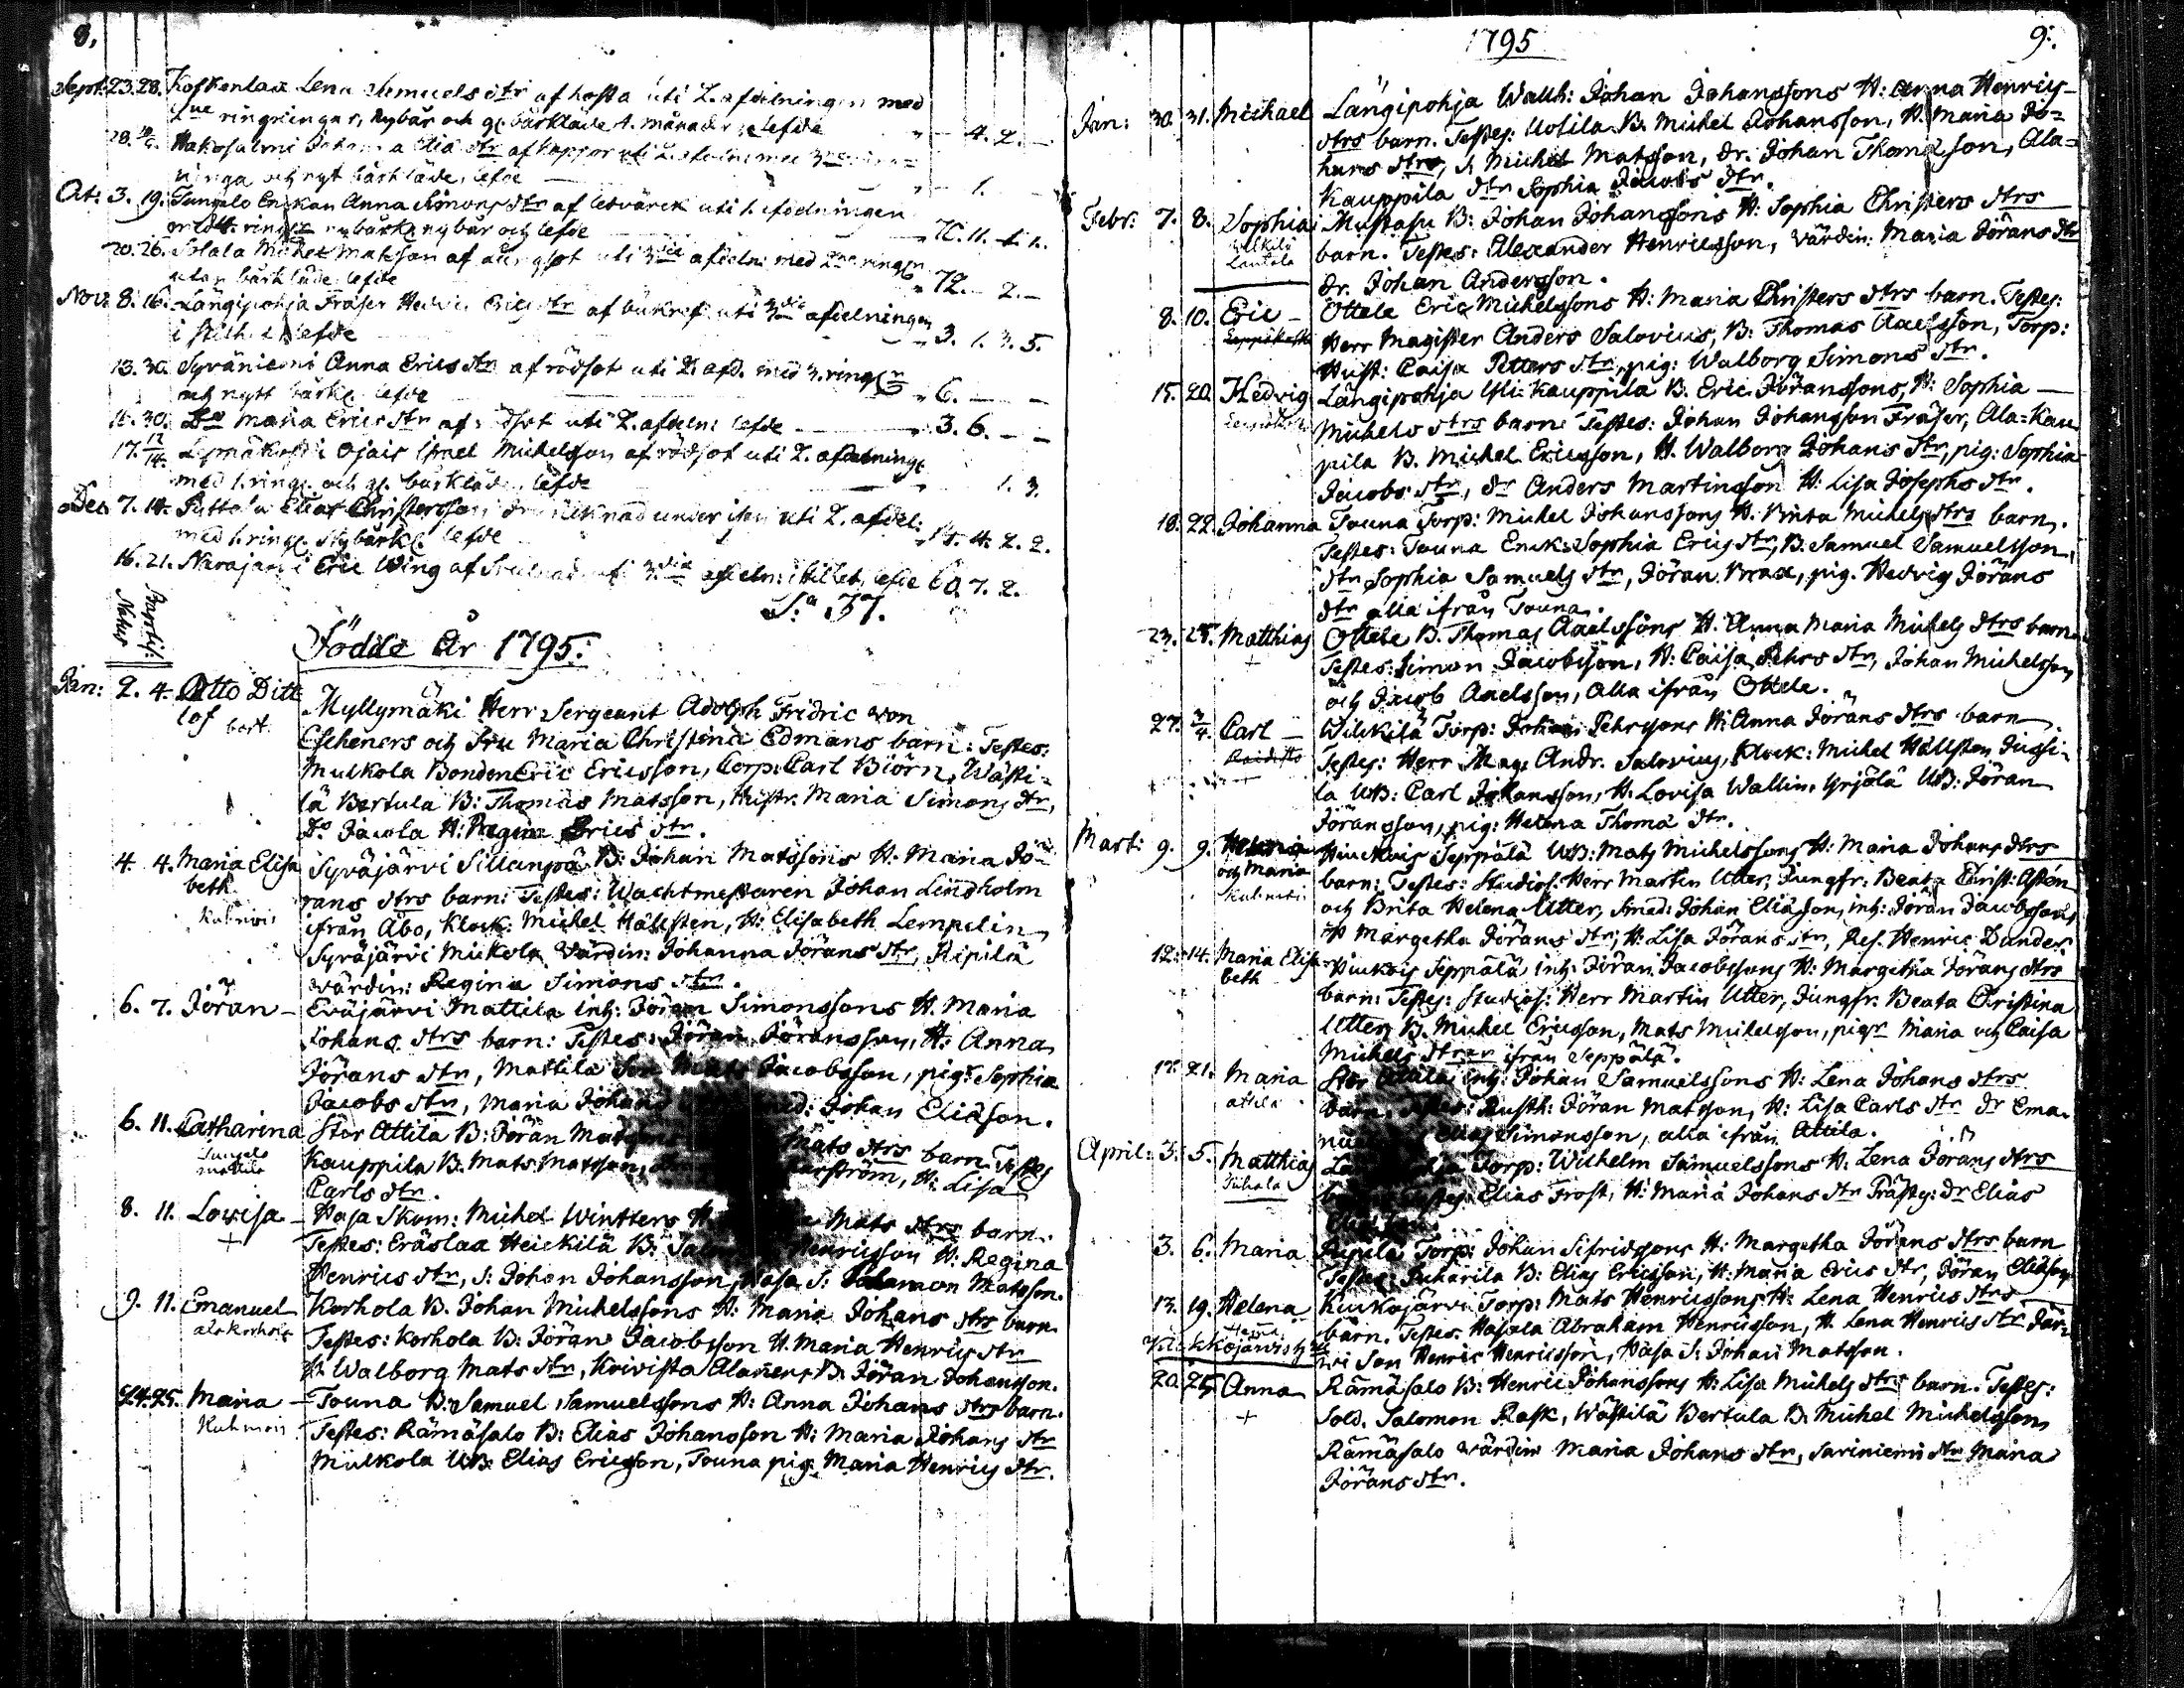 8,
Sept: 23. 28. Koskenlax Lena Samuels dtr af hosta uti 2. afdelningen med
2ne ringningar, nybår och gl bårkläde 4. månader lefde " - 4. 2. -
28. Hakosalmi Johanna Eliæ dtr af kappor uti 2. afdeln: med
ninga och nytt bårkläde, lefde " - 1. -
Oct: 3. 19. Tungelo Enkan Anna Simons dtr af letvärck uti 1. afdelningen
med ringn nybårkl nybår och lefde " 70. 11. 1.
20. 26. Solala Michel Matsson af lungsot uti 3die afdeln: med 2ne ringn
utan bårkläde lefde " 72. - 2. -
Nov: 8. 16. Längipohja Fräser Hedvig Erics dtr af bukref uti 3die afdelningen
i stillhet lefde " 3. 1. 3. 5.
13. 30. Syväniemi Anna Erics dtr af rödsot uti 2. afd. med 3. ringn
och nytt bårkl lefde " 6. - -
16. 30. Do Maria Erics dtr af rödsot uti 2. afdeln: lefde " 3. 6. - -
17. 14. Israel Michelsson af rödsot uti 2. afdelninge
med 1. ringn. och gl. bårkläde, lefde 1. 3.
Dec. 7. 14. Puttola Elias Christersson drunknad under isen uti 2. afdel:
med 1. ringn. Nybårkl. lefde " 14. 4. 2. 2.
16. 21. Navajarvi Eric Wing af uti 3die afdeln: i stillhet, lefde 60. 7. 2.
S:a 37.
Natus Baptis:
Födde År 1795:
Jan: 2. 4. Otto Ditt Myllymäki Herr Sergeant Adolph Fridric von
lof bort. Escheners och Fru Maria Christina Edmans barn: Testes:
Mulkola Bonden Eric Ericsson, Corp: Carl Biörn, Wästi-
lä Bertula B: Thomas Matsson, Hustr: Maria Simons dtr,
Do Jacola H: Regina Erics dtr.
4. 4. Maria Elisa Syväjärvi Sillanpä B: Johan Matssons H: Maria Jö
beth rans dtrs barn: Testes: Wachtmestaren Johan Lindholm
Kuhmois ifrån Åbo, Klock: Michel Hållsten, H: Elisabeth Lempelin
Syväjärvi Mickola värdin: Johanna Jörans dtr, Ripilä
värdin: Regina Simons dtr.
6. 7. Jöran - Eväjärvi Mattila inh: Jöran Simonssons H. Maria
Johans dtrs barn: Testes: Jöran Jöransson, H: Anna
Jörans dtr, Mattila Son Mats Jacobsson, pigr Sophia
Jacobs dtr, Maria Johans Johan Eliæson.
6. 11. Catharina Stor Attila B: Jöran Mats dtrs barn. Testes
Tungelo mattila Kauppila B. Mats Matsson, ström, H: Lisa
Carls dtr.
8. 11. Lovisa - Hasa Skom: Michel Wintters H Mats dtrs barn.
+ Testes: Eräslax Heickilä B: Henricsson H: Regina
Henrics dtr, S: Johan Johansson, Hasa S: Salomon Matsson.
9. 11. Emanuel Korhola B. Johan Michelssons H: Maria Johans dtrs barn.
ala Korhois Testes: Korhola B: Jöran Jacobsson H. Maria Henrics dtr
H: Walborg Mats dtr, Koivista Alanens B. Jöran Johansson.
24. 25. Maria - Touna B: Samuel Samuelssons H: Anna Johans dtrs barn.
Kuhmois Testes: Rämäsalo B: Elias Johansson H: Maria Johans dtr
Mulkola UB: Elias Ericsson, Touna pig. Maria Henrics dtr.
1795 9:.
Jan: 30. 31. Michael Längipohja Wallb: Johan Johanssons H: Anna Henrics-
dtrs barn. Testes: Uotila B. Michel Johansson, H. Maria Jo-
hans dtrs, S. Michel Matsson, dr. Johan Thomæson, Ala-
Kauppila dtr Sophia Jacobs dtr.
Febr: 7. 8. Sophia Mustasu B: Johan Johanssons H: Sophia Christers dtrs
Wilkilä Lautola barn. Testes: Alexander Henricsson, värdin: Maria Jörans dtr
dr. Johan Andersson.
8. 10. Eric - Ottele Eric Michelssons H: Maria Christers dtrs barn. Testes:
Herr Magister Anders Salovius, B: Thomas Axelsson, Torp:
Hust: Caisa Petters dtr, pig: Walborg Simons dtr.
15. 20. Hedvig Längipohja Yli-Kauppila B. Eric Jöranssons, H: Sophia
Michels dtrs barn: Testes: Johan Johansson Fräser, Ala-Kau
pila B. Michel Ericsson, H. Walborg Johans dtr, pig: Sophia
Jacobs dtr, dr Anders Martinsson H: Lisa Josephs dtr.
18. 22. Johanna Touna Torp: Michel Johanssons H. Brita Michels dtrs barn.
Testes: Touna Enck: Sophia Erics dtr, B. Samuel Samuelsson,
dtr Sophia Samuels dtr, Jöran Brax, pig. Hedvig Jörans
dtr alla ifrån Touna.
23. 25. Matthias Ottele B. Thomas Axelssons H. Anna Maria Michels dtrs barn.
+ Testes: Simon Jacobsson, H: Caisa Pehrs dtr, Johan Michelsson
och Jacob Axelsson, alla ifrån Ottele.
27. 3/4 Carl - Wilkilä Torp: Johan Pehrsons H: Anna Jörans dtrs barn.
Testes: Herr Mag: Andr. Salovius, Klock: Michel Hållsten Jusi-
la UB: Carl Johansson, H. Lovisa Wallin, Yrjölä UB: Jöran
Jöransson, pig: Helena Thomæ dtr.
Mart: 9. 9. och Maria Hinckois Seppälä UB: Mats Michelssons H: Maria Johans dtrs
Kuhmois barn: Testes: Studios: Herr Martin Utter, Jungfr: Beata Christ: Asten
och Brita Helena Utter, Smed: Johan Eliæson, inh: Jöran Jacobsson,
H Margetha Jörans dtr, H: Lisa Jörans dtr, Ref. Henric Dunder
12. 14. Maria Elisa Hinkois Seppälä inh: Jöran Jacobssons H: Margetha Jörans dtrs
beth barn: Testes: Studios: Herr Martin Utter, Jungfr: Beata Christina
Utter, B. Michel Ericsson, Mats Michelsson, pigr Maria och Caisa
Michels dtrar ifrån Seppälä.
17. 21. Maria Stor Attila inh: Johan Samuelssons H: Lena Johans dtrs
attila barn. Testes: Rusth: Jöran Matsson, H: Lisa Carls dtr dr Ema-
nuel Elias Simonsson, alla ifrån Attila.
April: 3. 5. Matthias Torp: Wilhelm Samuelssons H: Lena Jörans dtrs
Elias Frost, H: Maria Johans dtr Präfty: dr Elias
3. 6. Maria Ripilä Torp: Johan Sifridssons H: Margetha Jörans dtrs barn
Testes: Puharila B: Elias Ericsson, H: Maria Erics dtr, Jöran Eliæson
13. 19. Helena Kuckojärvi Torp: Mats Henricssons H: Lena Henrics dtrs
barn. Testes: Hasala Abraham Henricsson, H. Lena Henrics dtr Jär-
vi Son Henric Henricsson, Hasa S: Johan Matsson.
20. 25. Anna Rämäsalo B: Henric Johanssons H: Lisa Michels dtrs barn. Testes:
+ Sold. Salomon Rask, Wästilä Bertula B. Michel Michelsson
Rämäsalo värdin Maria Johans dtr, Sariniemi dtr Maria
Jörans dtr.